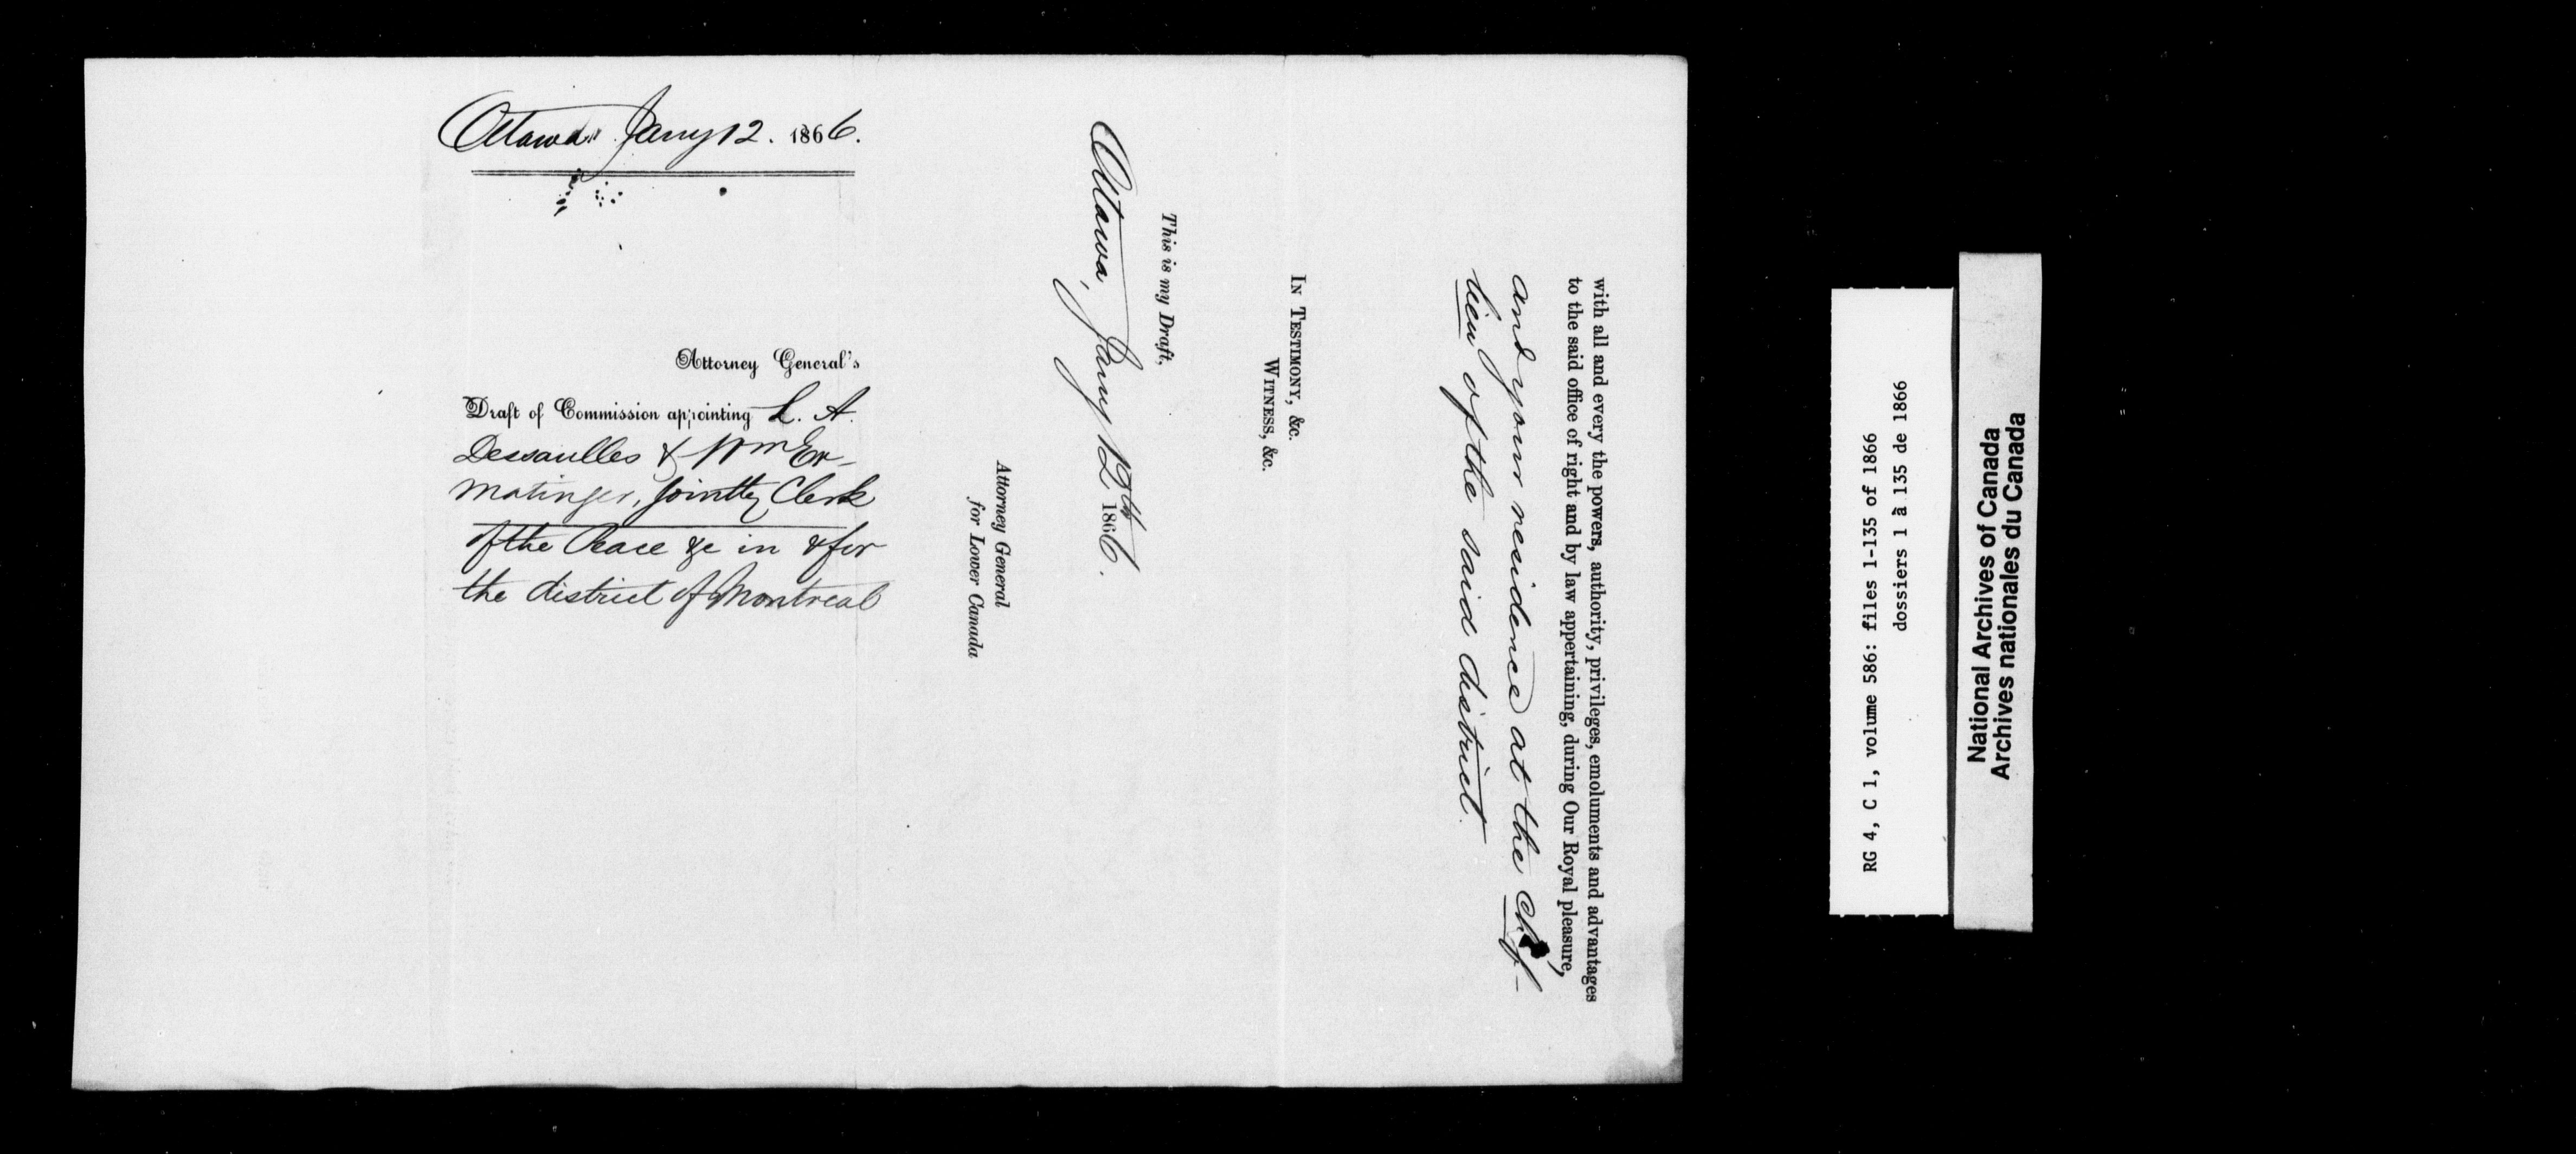 Ottawa Jany 12. 1866.
Attorney General's
Draft of Commission appointing L. A.
Dessaulles & Wm Er-
matinger, jointly Clerk
of the Peace &c in & for
the district of Montreal
with all and every the powers, authority, privileges, emoluments and advantages
to the said office of right and by law appertaining, during Our Royal pleasure,
and your residence at the chef-
lieu of the said district.
IN TESTIMONY, &c.
WITNESS, &c.
This is my Draft,
Ottawa, Jany 12th 1866.
Attorney General
for Lower Canada
RG 4, C 1, volume 586: files 1-135 of 1866
dossiers 1 à 135 de 1866
National Archives of Canada
Archives nationales du Canada